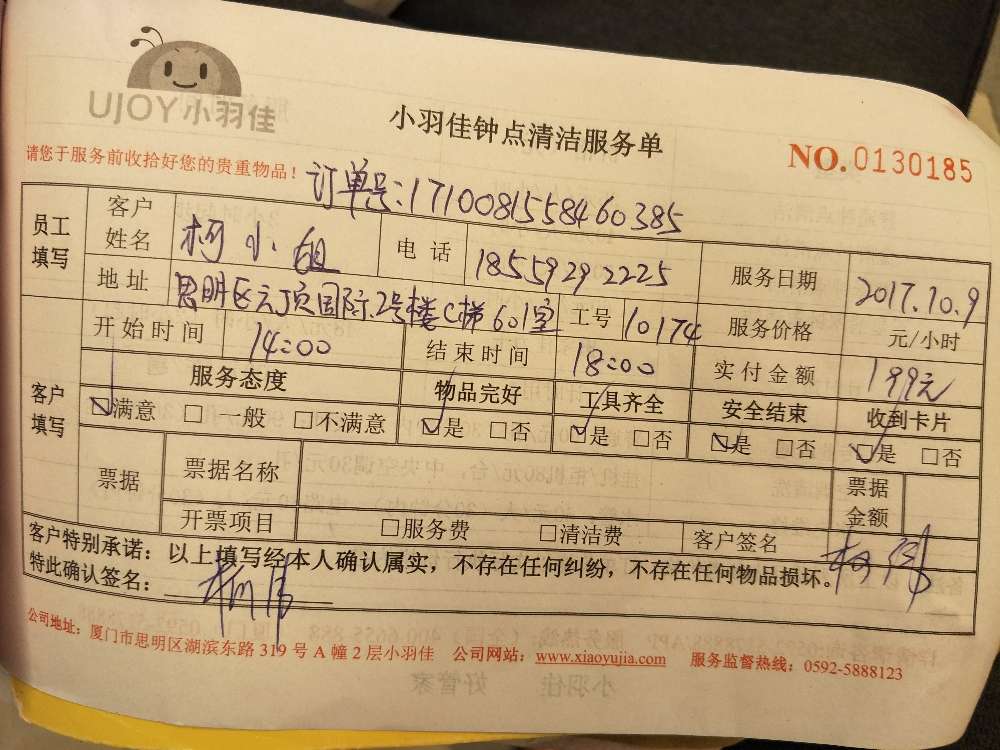 UJOY小羽佳
小羽佳钟点清洁服务单
NO.0130185
请您于服务前收拾好您的贵重物品！
订单号:1710081558460385
员工填写 客户姓名 柯小姐 电话 18559292225 服务日期 2017.10.9
地址 思明区元顶国际.2号楼C梯601室 工号 10174 服务价格 元/小时
开始时间 14:00 结束时间 18:00 实付金额 199元
客户填写 服务态度 物品完好 工具齐全 安全结束 收到卡片
☑满意 □一般 □不满意 ☑是 □否 ☑是 □否 ☑是 □否 ☑是 □否
票据 票据名称 票据金额
开票项目 □服务费 □清洁费 客户签名
客户特别承诺：以上填写经本人确认属实，不存在任何纠纷，不存在任何物品损坏。
特此确认签名：
公司地址：厦门市思明区湖滨东路319号A幢2层小羽佳 公司网站：www.xiaoyujia.com 服务监督热线：0592-5888123